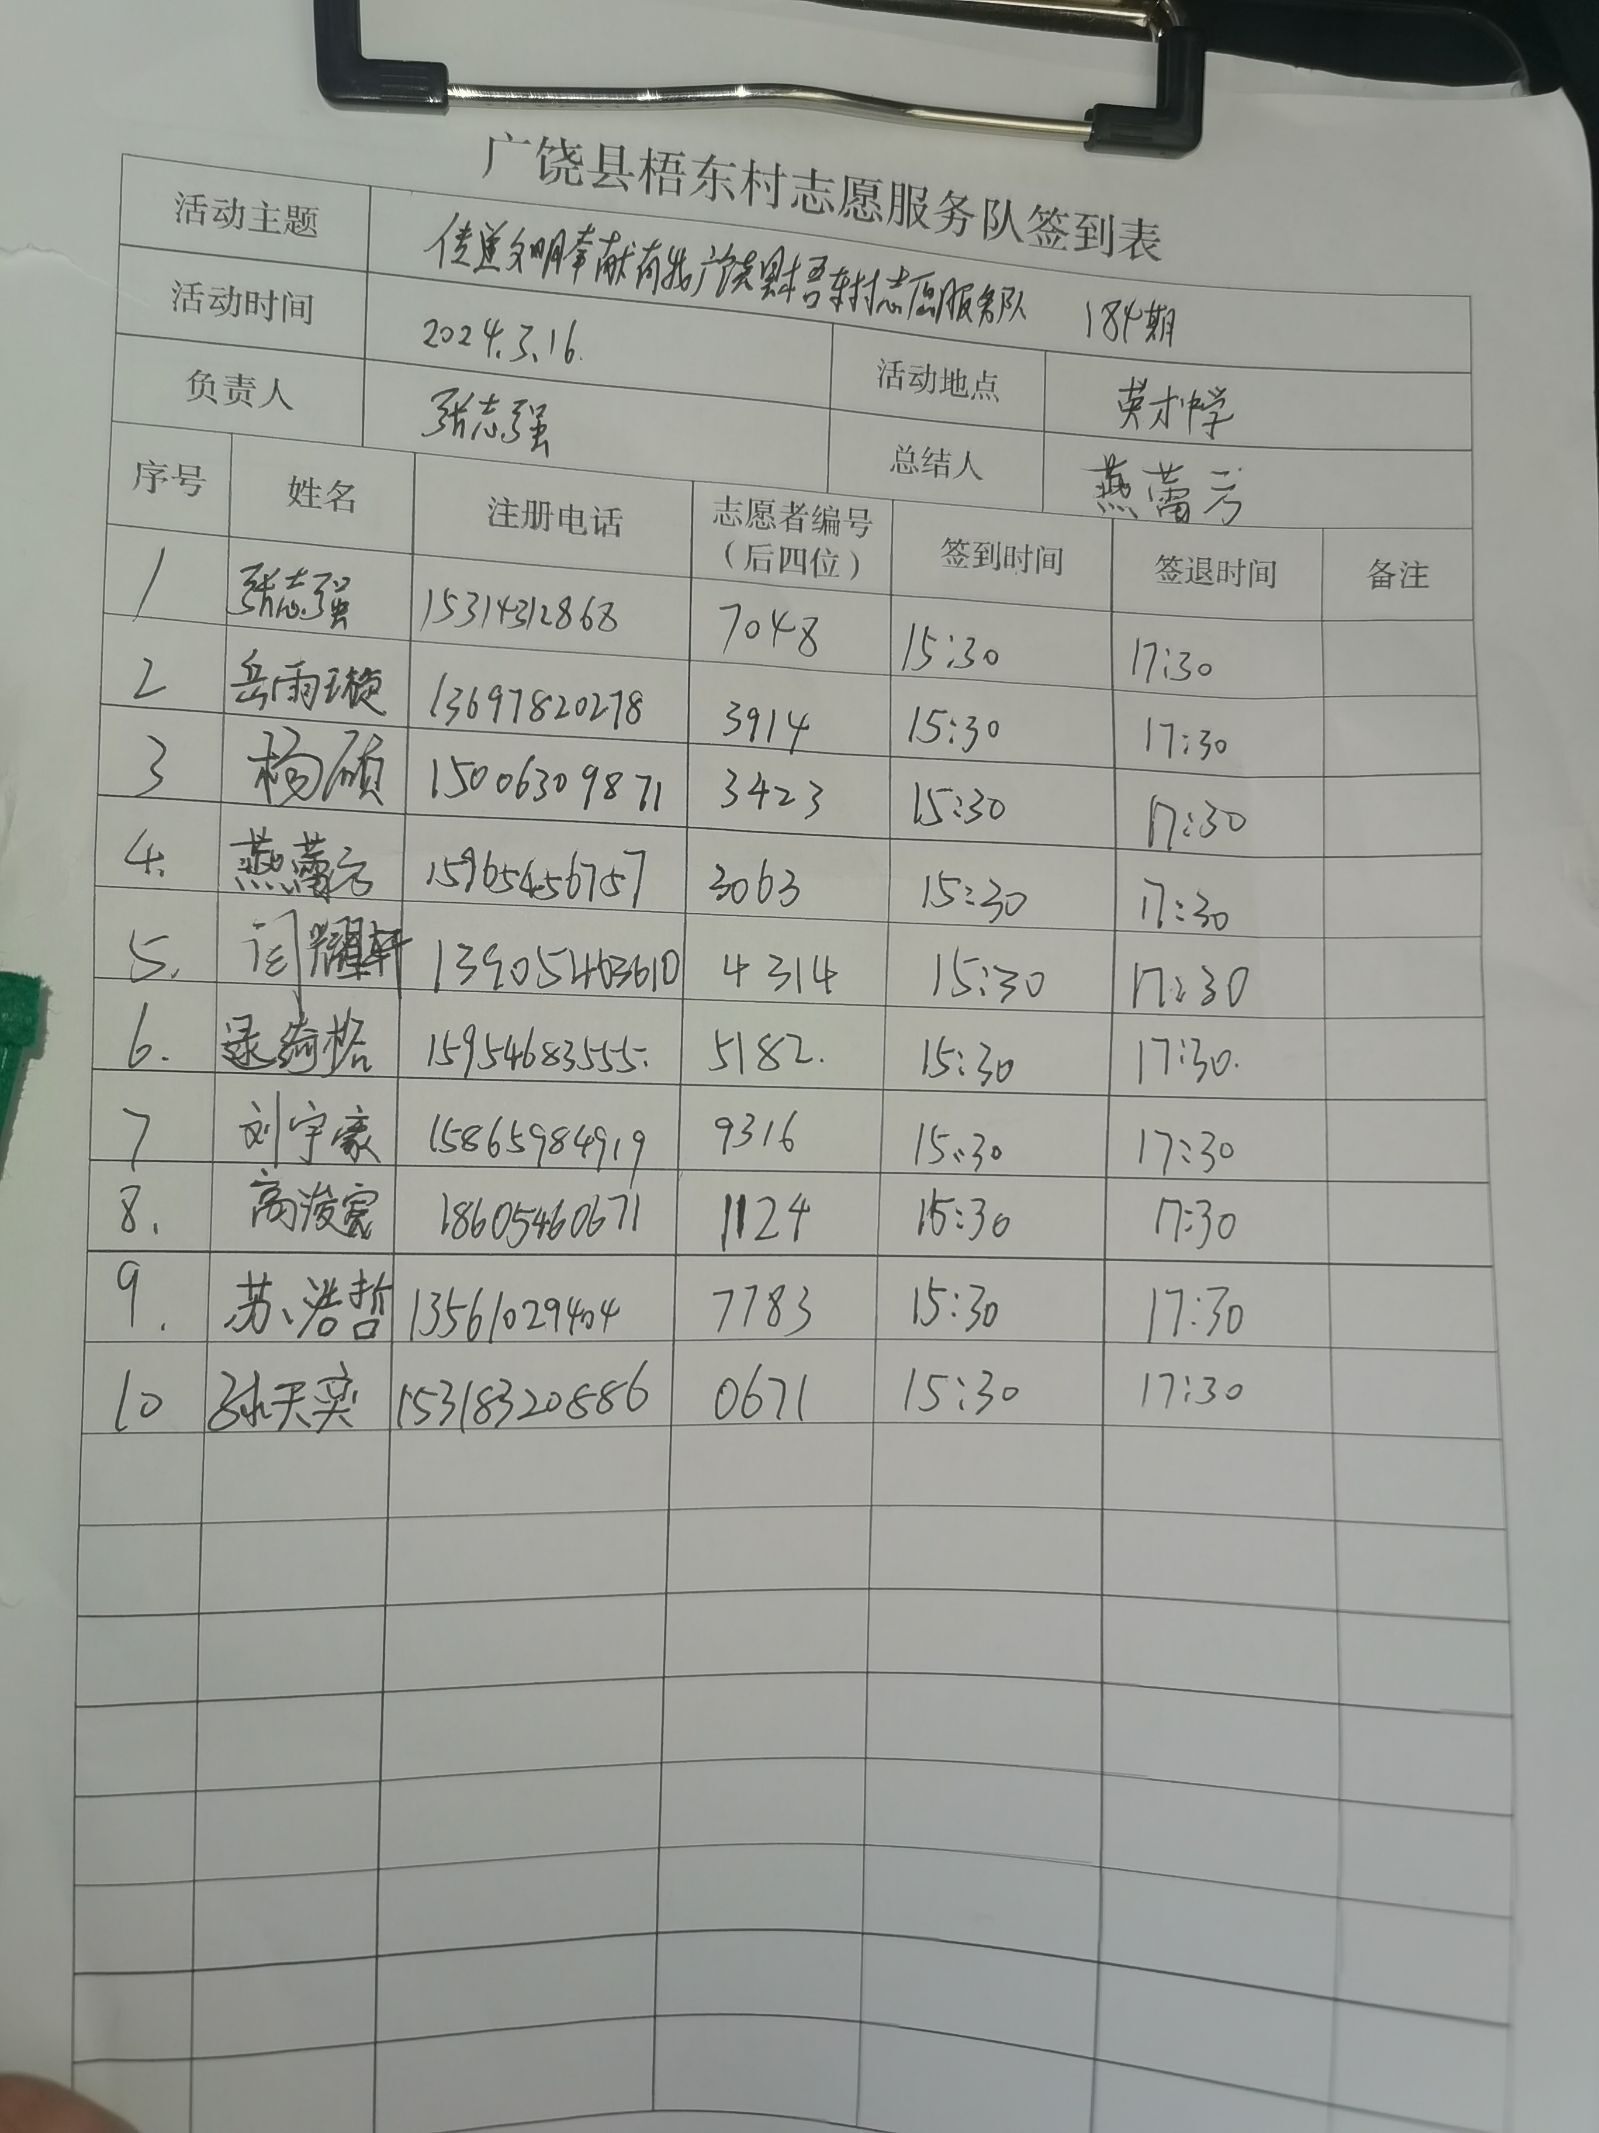 广饶县梧东村志愿服务队签到表
活动主题 传递文明奉献有我广饶县梧东村志愿服务队 184期
活动时间 2024.3.16. 活动地点 英才中学
负责人 张志强 总结人 燕蕾云
序号 姓名 注册电话 志愿者编号（后四位） 签到时间 签退时间 备注
1 张志强 15314312868 7048 15:30 17:30
2 岳雨璇 13697820278 3914 15:30 17:30
3 杨硕 15006309871 3423 15:30 17:30
4. 燕蕾云 15965456757 3063 15:30 17:30
5. 闫耀轩 13905463610 4314 15:30 17:30
6. 15954683555. 5182. 15:30 17:30.
7 刘宇豪 15865984919 9316 15:30 17:30
8. 高浚宸 18605460671 1124 15:30 17:30
9. 苏浩哲 13561029404 7783 15:30 17:30
10 孙天奕 15318320886 0671 15:30 17:30